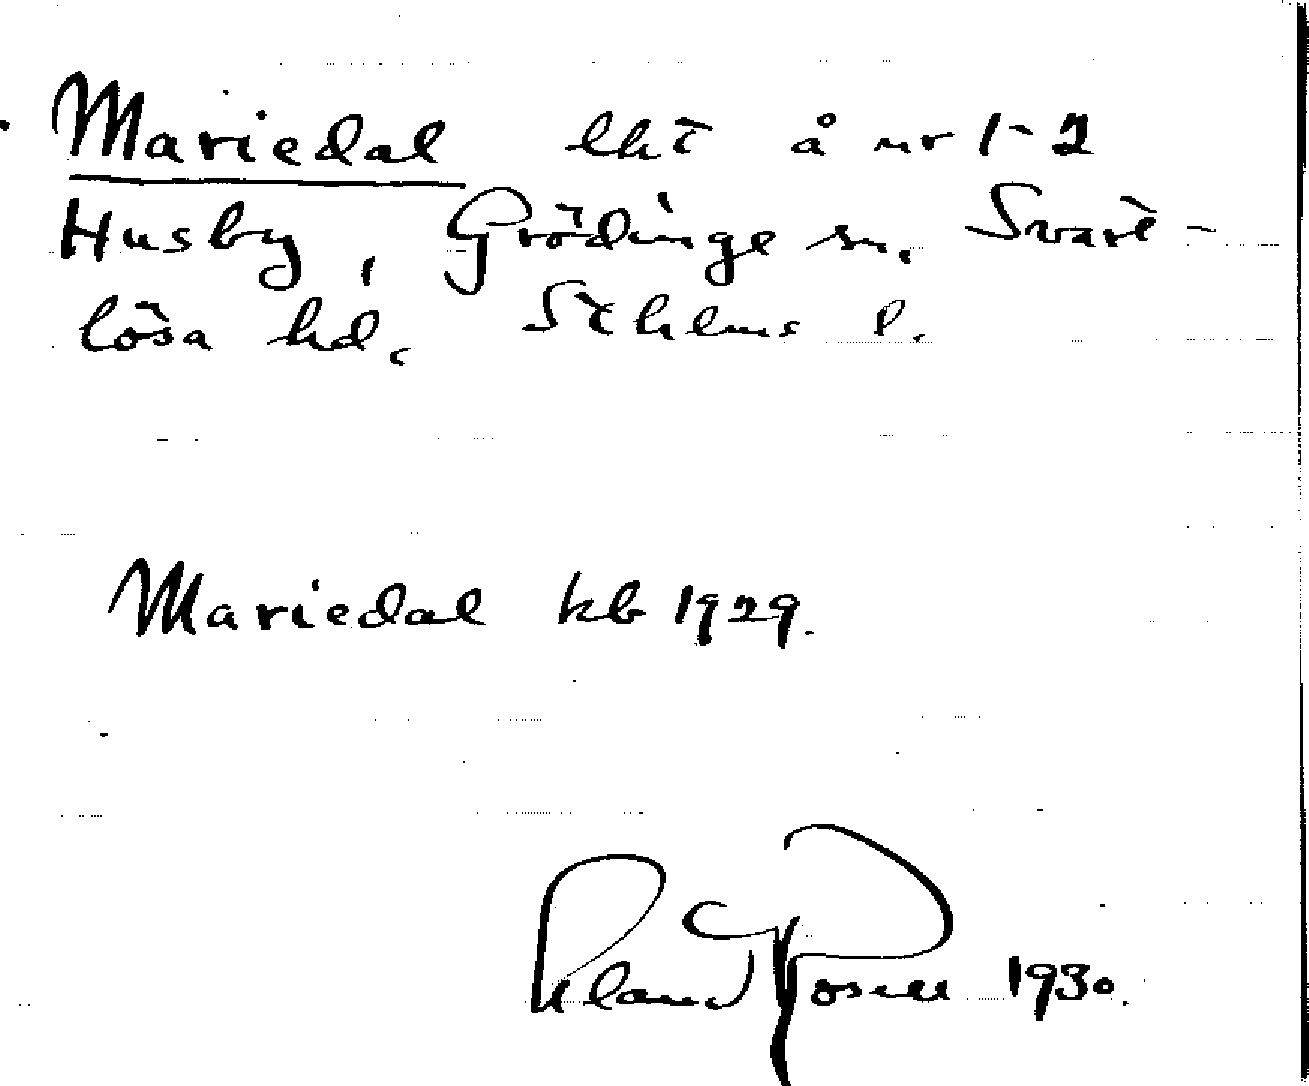 Mariedal lht å nr 1-2
Husby, Grödinge sn. Svart-
lösa hd. Sthlms l.
Mariedal kb 1929.
Rosell 1930.